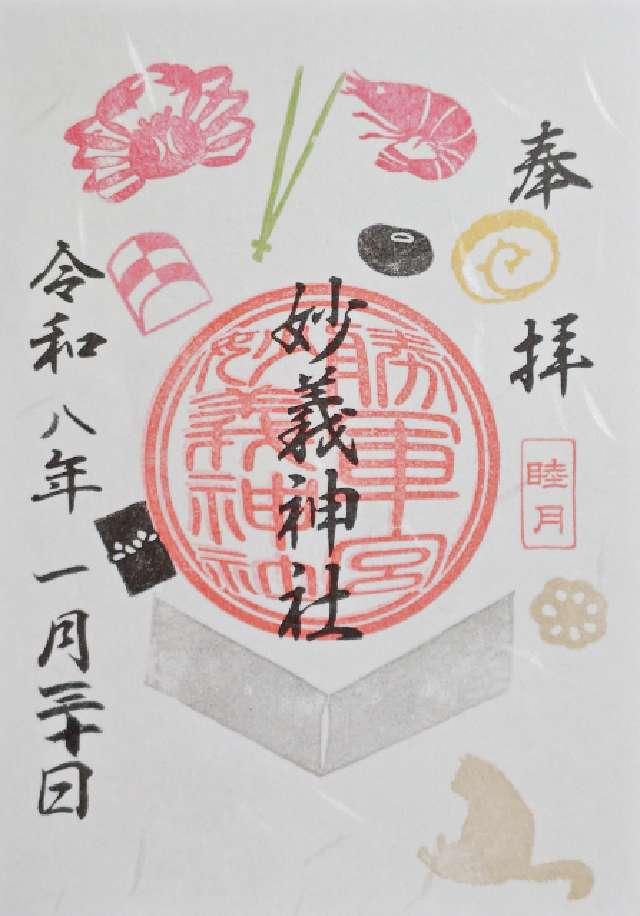 奉拝
睦月
勝軍宮
妙義神社
妙義神社
令和八年一月三十日